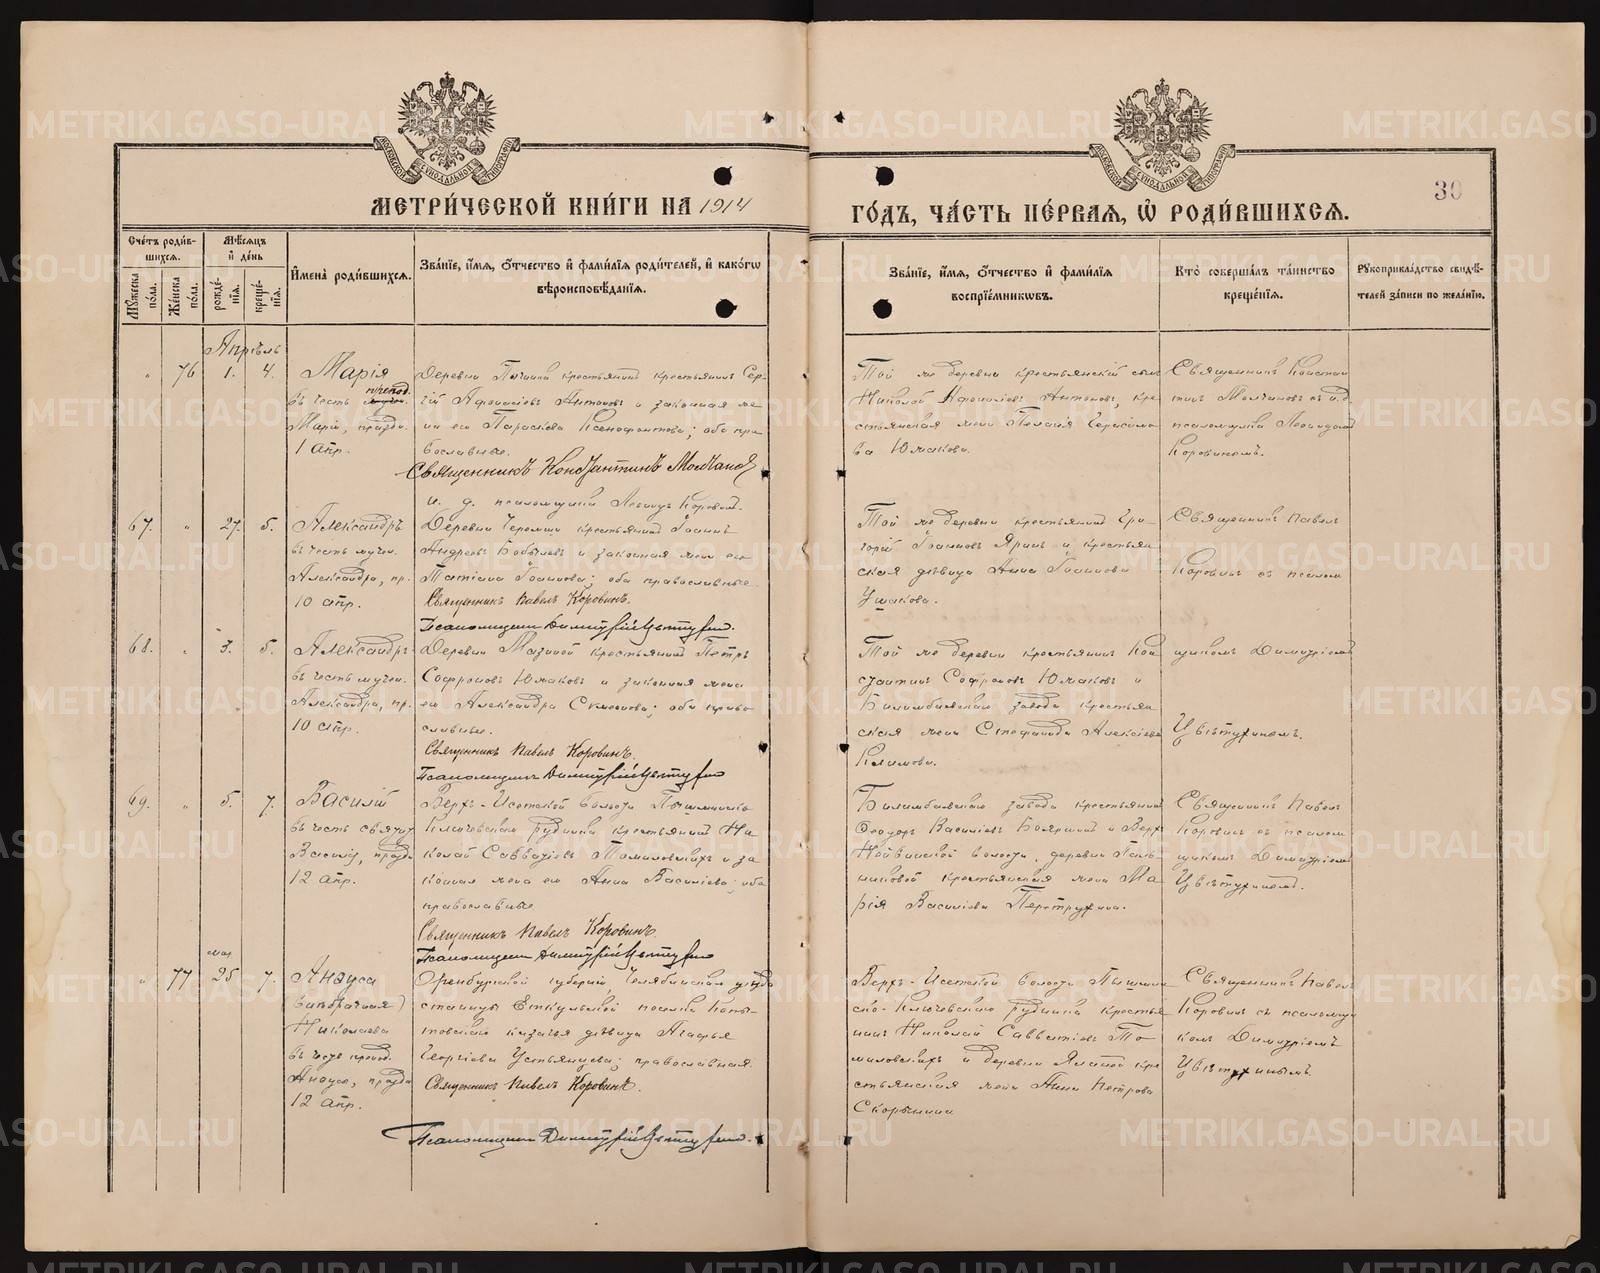 МЕТРИ́ЧЕСКОЙ КНИ́ГИ НА 1914
ГО́ДЪ, ЧА́СТЬ ПЕ́РВАЯ, Ѿ РОДИ́ВШИХСЯ.
30
Сче́тъ роди́в-
шихся.
Мѣ́сяцъ
и҆ де́нь
Мꙋ́жеска по́ла.
Же́нска по́ла.
рожде́-
нїѧ.
креще́-
нїѧ.
И҆мена̀ роди́вшихся.
Зва́нїе, и҆́мѧ, ѻ҆́тчество и҆ фами́лїѧ роди́телей, и҆ како́гѡ
вѣроисповѣ́данїѧ.
Зва́нїе, и҆́мѧ, ѻ҆́тчество и҆ фами́лїѧ
воспрїе́мникѡвъ.
Кто̀ соверша́лъ та́инство
креще́нїѧ.
Рꙋкоприкла́дство свидѣ́-
телей за́писи по жела́нїю.
Апрѣль
" 76 1. 4.
Марія
въ честь препод.
Маріи, праздн.
1 апр.
Деревни крестьянинъ Сер-
гій Афонасіевъ Антоновъ и законная же
на его Параскева Ксенофонтова; оба пра
вославные.
Священникъ Константинъ Молчановъ
и. д. псаломщика Леонидъ Коровинъ.
Той же деревни крестьянскій сынъ
Николай Афонасіевъ Антоновъ, кре
стьянская жена Пелагія Герасимо
ва Южакова.
Священникъ Констан
тинъ Молчановъ съ и.д.
псаломщика Леонидомъ
Коровинымъ.
67. " 27. 5.
Александръ
въ честь мучен.
Александра, пр.
10 апр.
Деревни Черемши крестьянинъ Іоаннъ
Андреевъ Бобылевъ и законная жена его
Татіана Іоаннова; оба православные.
Священникъ Павелъ Коровинъ.
Псаломщикъ Димитрій Цвѣтухинъ.
Той же деревни крестьянинъ Гри-
горій Іоанновъ Яринъ и крестьян
ская дѣвица Анна Іоаннова
Ушакова.
Священникъ Павелъ
Коровинъ съ псалом
68. " 3. 5.
Александръ
въ честь мучен.
Александра, пр.
10 апр.
Деревни Мазиной крестьянинъ Петръ
Софроновъ Южаковъ и законная жена
его Александра Симеонова; оба право
славные.
Священникъ Павелъ Коровинъ.
Псаломщикъ Димитрій Цвѣтухинъ
Той же деревни крестьянинъ Кон
стантинъ Софроновъ Южаковъ и
Билимбаевскаго завода крестьян
ская жена Стефанида Алексѣева
Климова.
щикомъ Димитріемъ
Цвѣтухинымъ.
69. " 5. 7.
Василій
въ честь святит
Василія, праздн
12 апр.
Верхъ-Исетской волости Пышминско
Ключевскаго рудника крестьянинъ Ни
колай Савватіевъ Томиловскихъ и за
конная жена его Анна Василіева; оба
православные
Священникъ Павелъ Коровинъ.
Псаломщикъ Димитрій Цвѣтухинъ
Билимбаевскаго завода крестьянинъ
Ѳеодоръ Василіевъ Бояршинъ и Верх
Нейвинской волости, деревни Паль-
никовой крестьянская жена Ма
рія Василіева Перетружина.
Священникъ Павелъ
Коровинъ съ псалом
щикомъ Димитріемъ
Цвѣтухинымъ.
" 77 мар 25 7.
Анѳуса
(внѣбрачная)
Николаева
въ честь препод.
Анѳусы, праздн
12 апр.
Оренбургской губерніи, Челябинскаго уѣзда
станицы Еткульской поселка Копы-
товскаго казачья дѣвица Агафья
Георгіева Устьянцева; православная.
Священникъ Павелъ Коровинъ.
Псаломщикъ Димитрій Цвѣтухинъ.
Верхъ-Исетской волости Пышмин
ско-Ключевскаго рудника крестья
нинъ Николай Савватіевъ То-
миловскихъ и деревни кре
стьянская жена Анна Петрова
Скорынина
Священникъ Павелъ
Коровинъ съ псаломщи
комъ Димитріемъ
Цвѣтухинымъ.
METRIKI.GASO-URAL.RU